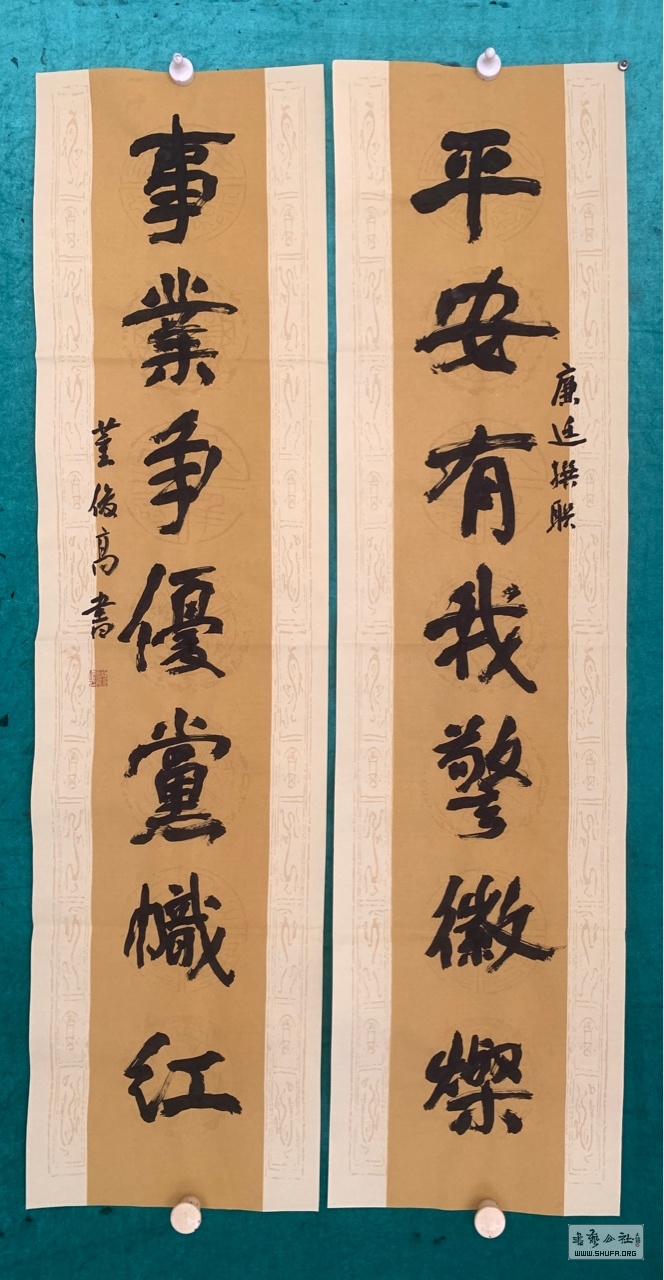 平安有我警徽燦
廉廷撰联
事業争優黨幟红
董俊高书
书艺公社
WWW.SHUFA.ORG